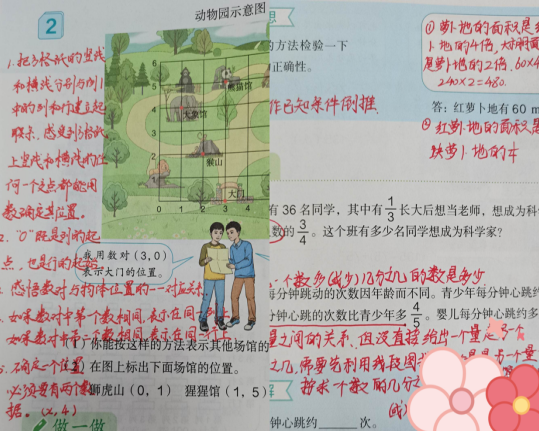 2
动物园示意图
1.把方格纸的竖线
和横线分别与例1
中的列和行建立起
联系,感受到方格纸
上竖线和横线的任
何一个交点都能用
数对确定其位置。
2.“0”既是列的起
点,也是行的起始
感悟数对与物体位置的一一对应关系
如果数对中第一个数相同,表示在同一列
5.确定一个位置
必须要有两个数
据。(x,4)
6
5
4
3
2
1
0 1 2 3 4
熊猫馆
大象馆
猴山
大门
我用数对(3,0)
表示大门的位置。
)你能按这样的方法表示其他场馆的
在图上标出下面场馆的位置。
狮虎山(0,1) 猩猩馆(1,5)
做一做
想
的方法检验一下
正确性。
作已知条件倒推
①萝卜地的面积是
卜地的4倍,大棚面
是萝卜地的2倍,60×4
240×2=480.
答:红萝卜地有60 m
②红萝卜地的面积
块萝卜地的1/4
有36名同学,其中有1/3长大后想当老师,想成为科
数的3/4。这个班有多少名同学想成为科学家?
个数多(或少)几分之几的数是多少
每分钟跳动的次数因年龄而不同。青少年每分钟心跳约
分钟心跳的次数比青少年多4/5。婴儿每分钟心跳多
量之间的关系,但没直接给出一个量是另一个
之几,需要先利用线段图
转求个数的几分之
钟心跳约______次。